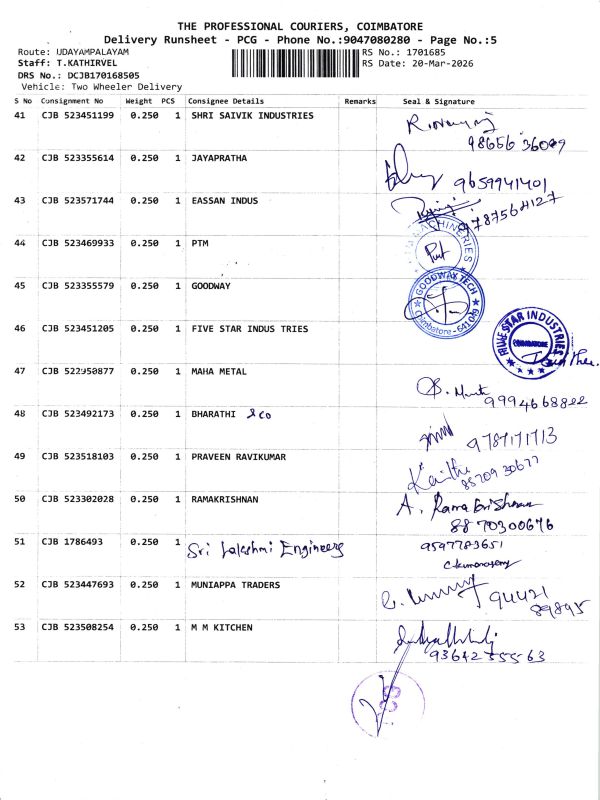 THE PROFESSIONAL COURIERS, COIMBATORE
Delivery Runsheet - PCG - Phone No.:9047080280 - Page No.:5
Route: UDAYAMPALAYAM RS No.: 1701685
Staff: T.KATHIRVEL RS Date: 20-Mar-2026
DRS No.: DCJB170168505
Vehicle: Two Wheeler Delivery
S No Consignment No Weight PCS Consignee Details Remarks Seal & Signature
41 CJB 523451199 0.250 1 SHRI SAIVIK INDUSTRIES
98656 36099
42 CJB 523355614 0.250 1 JAYAPRATHA
9659941401
43 CJB 523571744 0.250 1 EASSAN INDUS
9787564127
44 CJB 523469933 0.250 1 PTM
45 CJB 523355579 0.250 1 GOODWAY
GOODWAY TECH
Coimbatore - 641 049
46 CJB 523451205 0.250 1 FIVE STAR INDUS TRIES
STAR INDUSTRIES
COIMBATORE
47 CJB 522950877 0.250 1 MAHA METAL
9994668822
48 CJB 523492173 0.250 1 BHARATHI & co
9787171713
49 CJB 523518103 0.250 1 PRAVEEN RAVIKUMAR
8570930677
50 CJB 523302028 0.250 1 RAMAKRISHNAN
A. Ramakrishnan
8870300676
51 CJB 1786493 0.250 1 Sri Lakshmi Engineers
9597783651
52 CJB 523447693 0.250 1 MUNIAPPA TRADERS
94421
89895
53 CJB 523508254 0.250 1 M M KITCHEN
9364255563